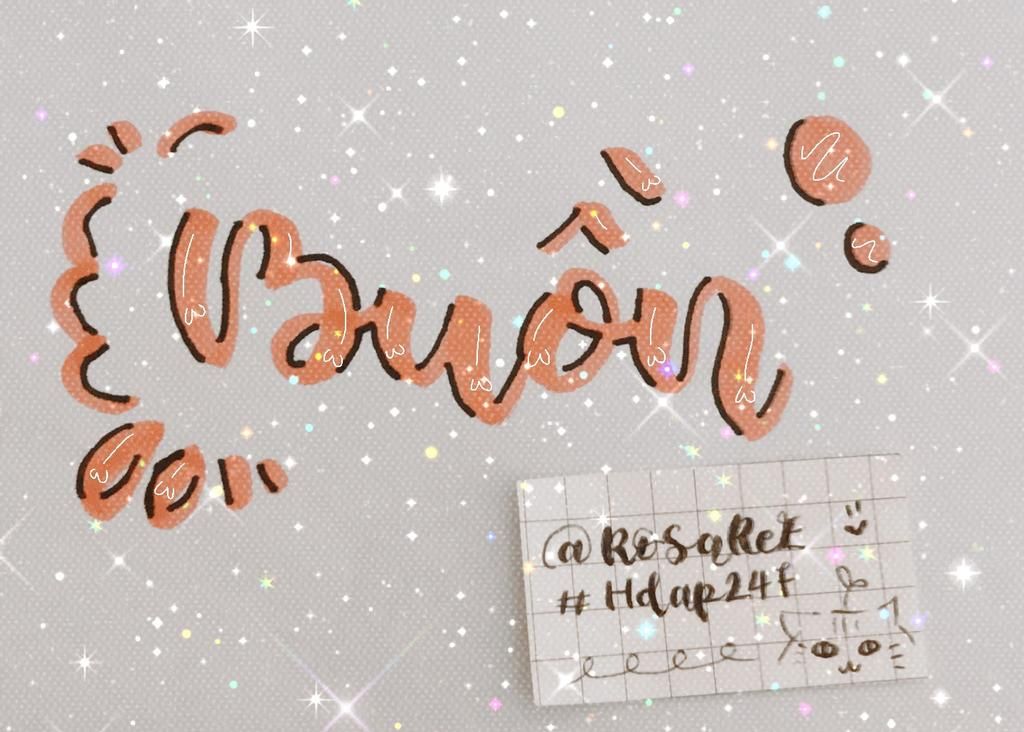 Buồn
@RoSaRet
#Hdap24f